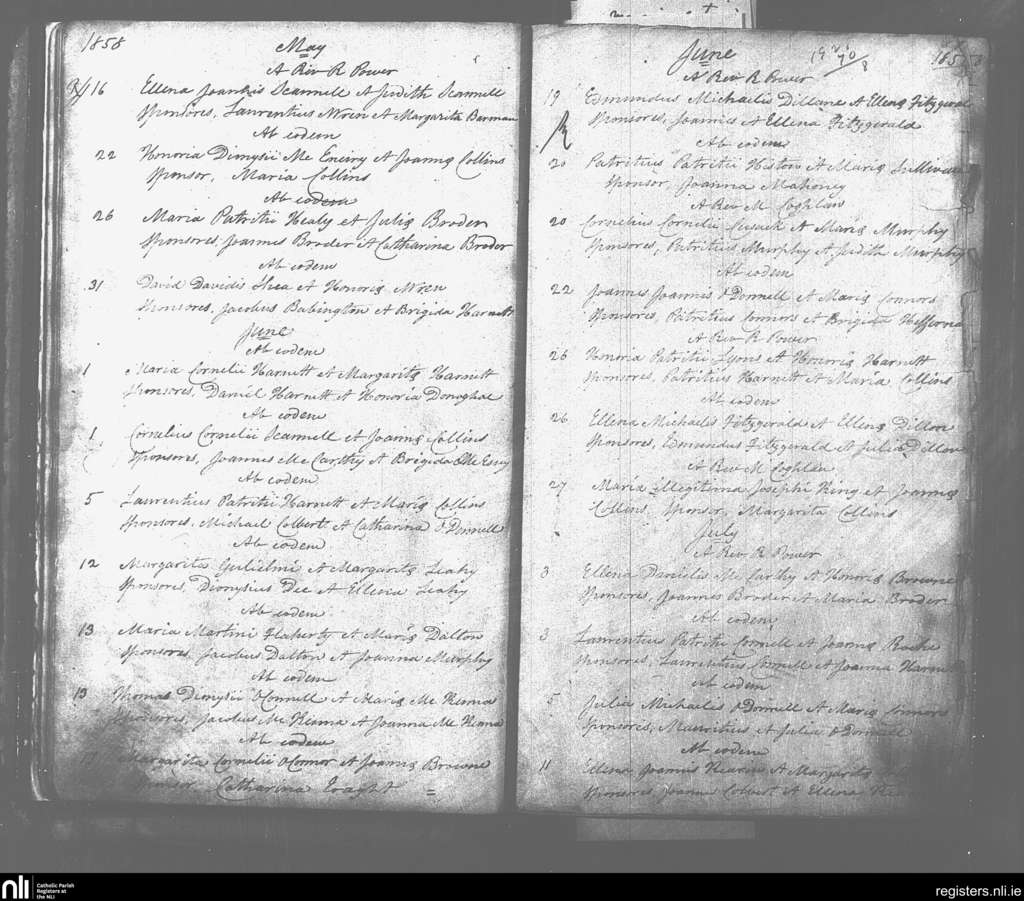 1858
May
A Rev R Power
16 Ellena Joannis Scannell et Judith Scannell
Sponsores, Laurentius Wren et Margarita
Ab eodem
22 Honoria Dionysii Mc Eneiry et Joannæ Collins
Sponsor, Maria Collins
Ab eodem
26 Maria Patritii Healy et Juliæ Broder
Sponsores, Joannes Broder et Catharina Broder
Ab eodem
31 David Davidis Shea et Honoriæ Wren
Sponsores, Jacobus Babington et Brigida Harnett
June
Ab eodem
1 Maria Cornelii Harnett et Margaritæ Harnett
Sponsores, Daniel Harnett et Honoria Donoghoe
Ab eodem
1 Cornelius Cornelii Scannell et Joannæ Collins
Sponsores, Joannes Mc Carthy et Brigida
Ab eodem
5 Laurentius Patritii Harnett et Mariæ Collins
Sponsores, Michael Colbert et Catharina O'Donnell
Ab eodem
12 Margarita Gulielmi et Margaritæ Leahy
Sponsores, Dionysius Dee et Ellena Leahy
Ab eodem
13 Maria Martini Flaherty et Mariæ Dalton
Sponsores Jacobus Dalton et Joanna Murphy
Ab eodem
13 Thomas Dionysii O'Connell et Mariæ Mc Kenna
Sponsores, Jacobus Mc Kenna et Joanna Mc Kenna
Ab eodem
Margarita Cornelii O'Connor et Joannæ Browne
Sponsor, Catharina Eraght
June
A Rev R Power
19 Edmundus Michaelis Dillane et Ellenæ Fitzgerald
Sponsores, Joannes et Ellena Fitzgerald
Ab eodem
20 Patritius Patritii Histon et Mariæ Sullivan
Sponsor, Joanna Mahoney
A Rev M Coghlan
20 Cornelius Cornelii Cusack et Mariæ Murphy
Sponsores, Patritius Murphy et Judith Murphy
Ab eodem
22 Joannes Joannis O'Donnell et Mariæ Connors
Sponsores, Patritius Connors et Brigida
A Rev R Power
26 Honoria Patritii Lyons et Honoriæ Harnett
Sponsores, Patritius Harnett et Maria Collins
Ab eodem
26 Ellena Michaelis Fitzgerald et Ellenæ Dillon
Sponsores, Edmundus Fitzgerald et Julia Dillon
A Rev M Coghlan
27 Maria illegitima Josephi King et Joannæ
Collins, Sponsor, Margarita Collins
July
A Rev R Power
3 Ellena Danielis Mc Carthy et Honoriæ Browne
Sponsores, Joannes Broder et Maria Broder
Ab eodem
3 Laurentius Patritii Connell et Joannæ Roche
Sponsores, Laurentius Connell et Joanna
Ab eodem
5 Julia Michaelis O'Donnell et Mariæ Connors
Sponsores, Mauritius et Julia O'Donnell
Ab eodem
11 Ellena Joannis et Margaritæ
Sponsores, Joannes Colbert et Ellena
nli Catholic Parish
Registers at
the NLI
registers.nli.ie